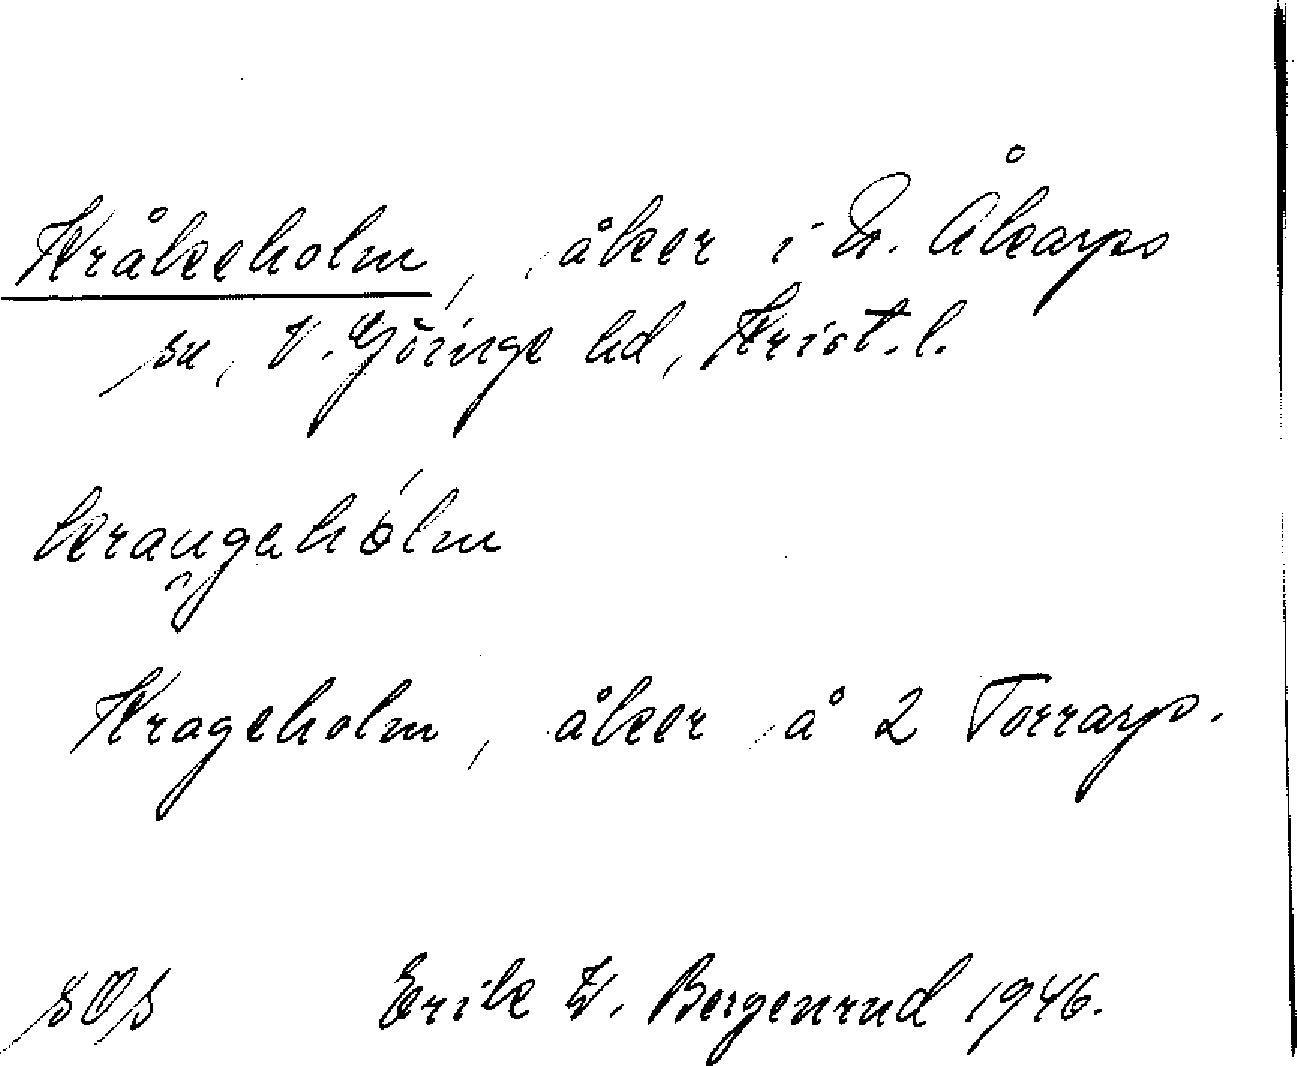 Kråkeholm, åker i Ö. Åkarps
sn, V. Göinge hd, Krist. l.
kraugahólm
Krageholm, åker å 2 Torrarp.
sOs Erik W. Bergenrud 1946.